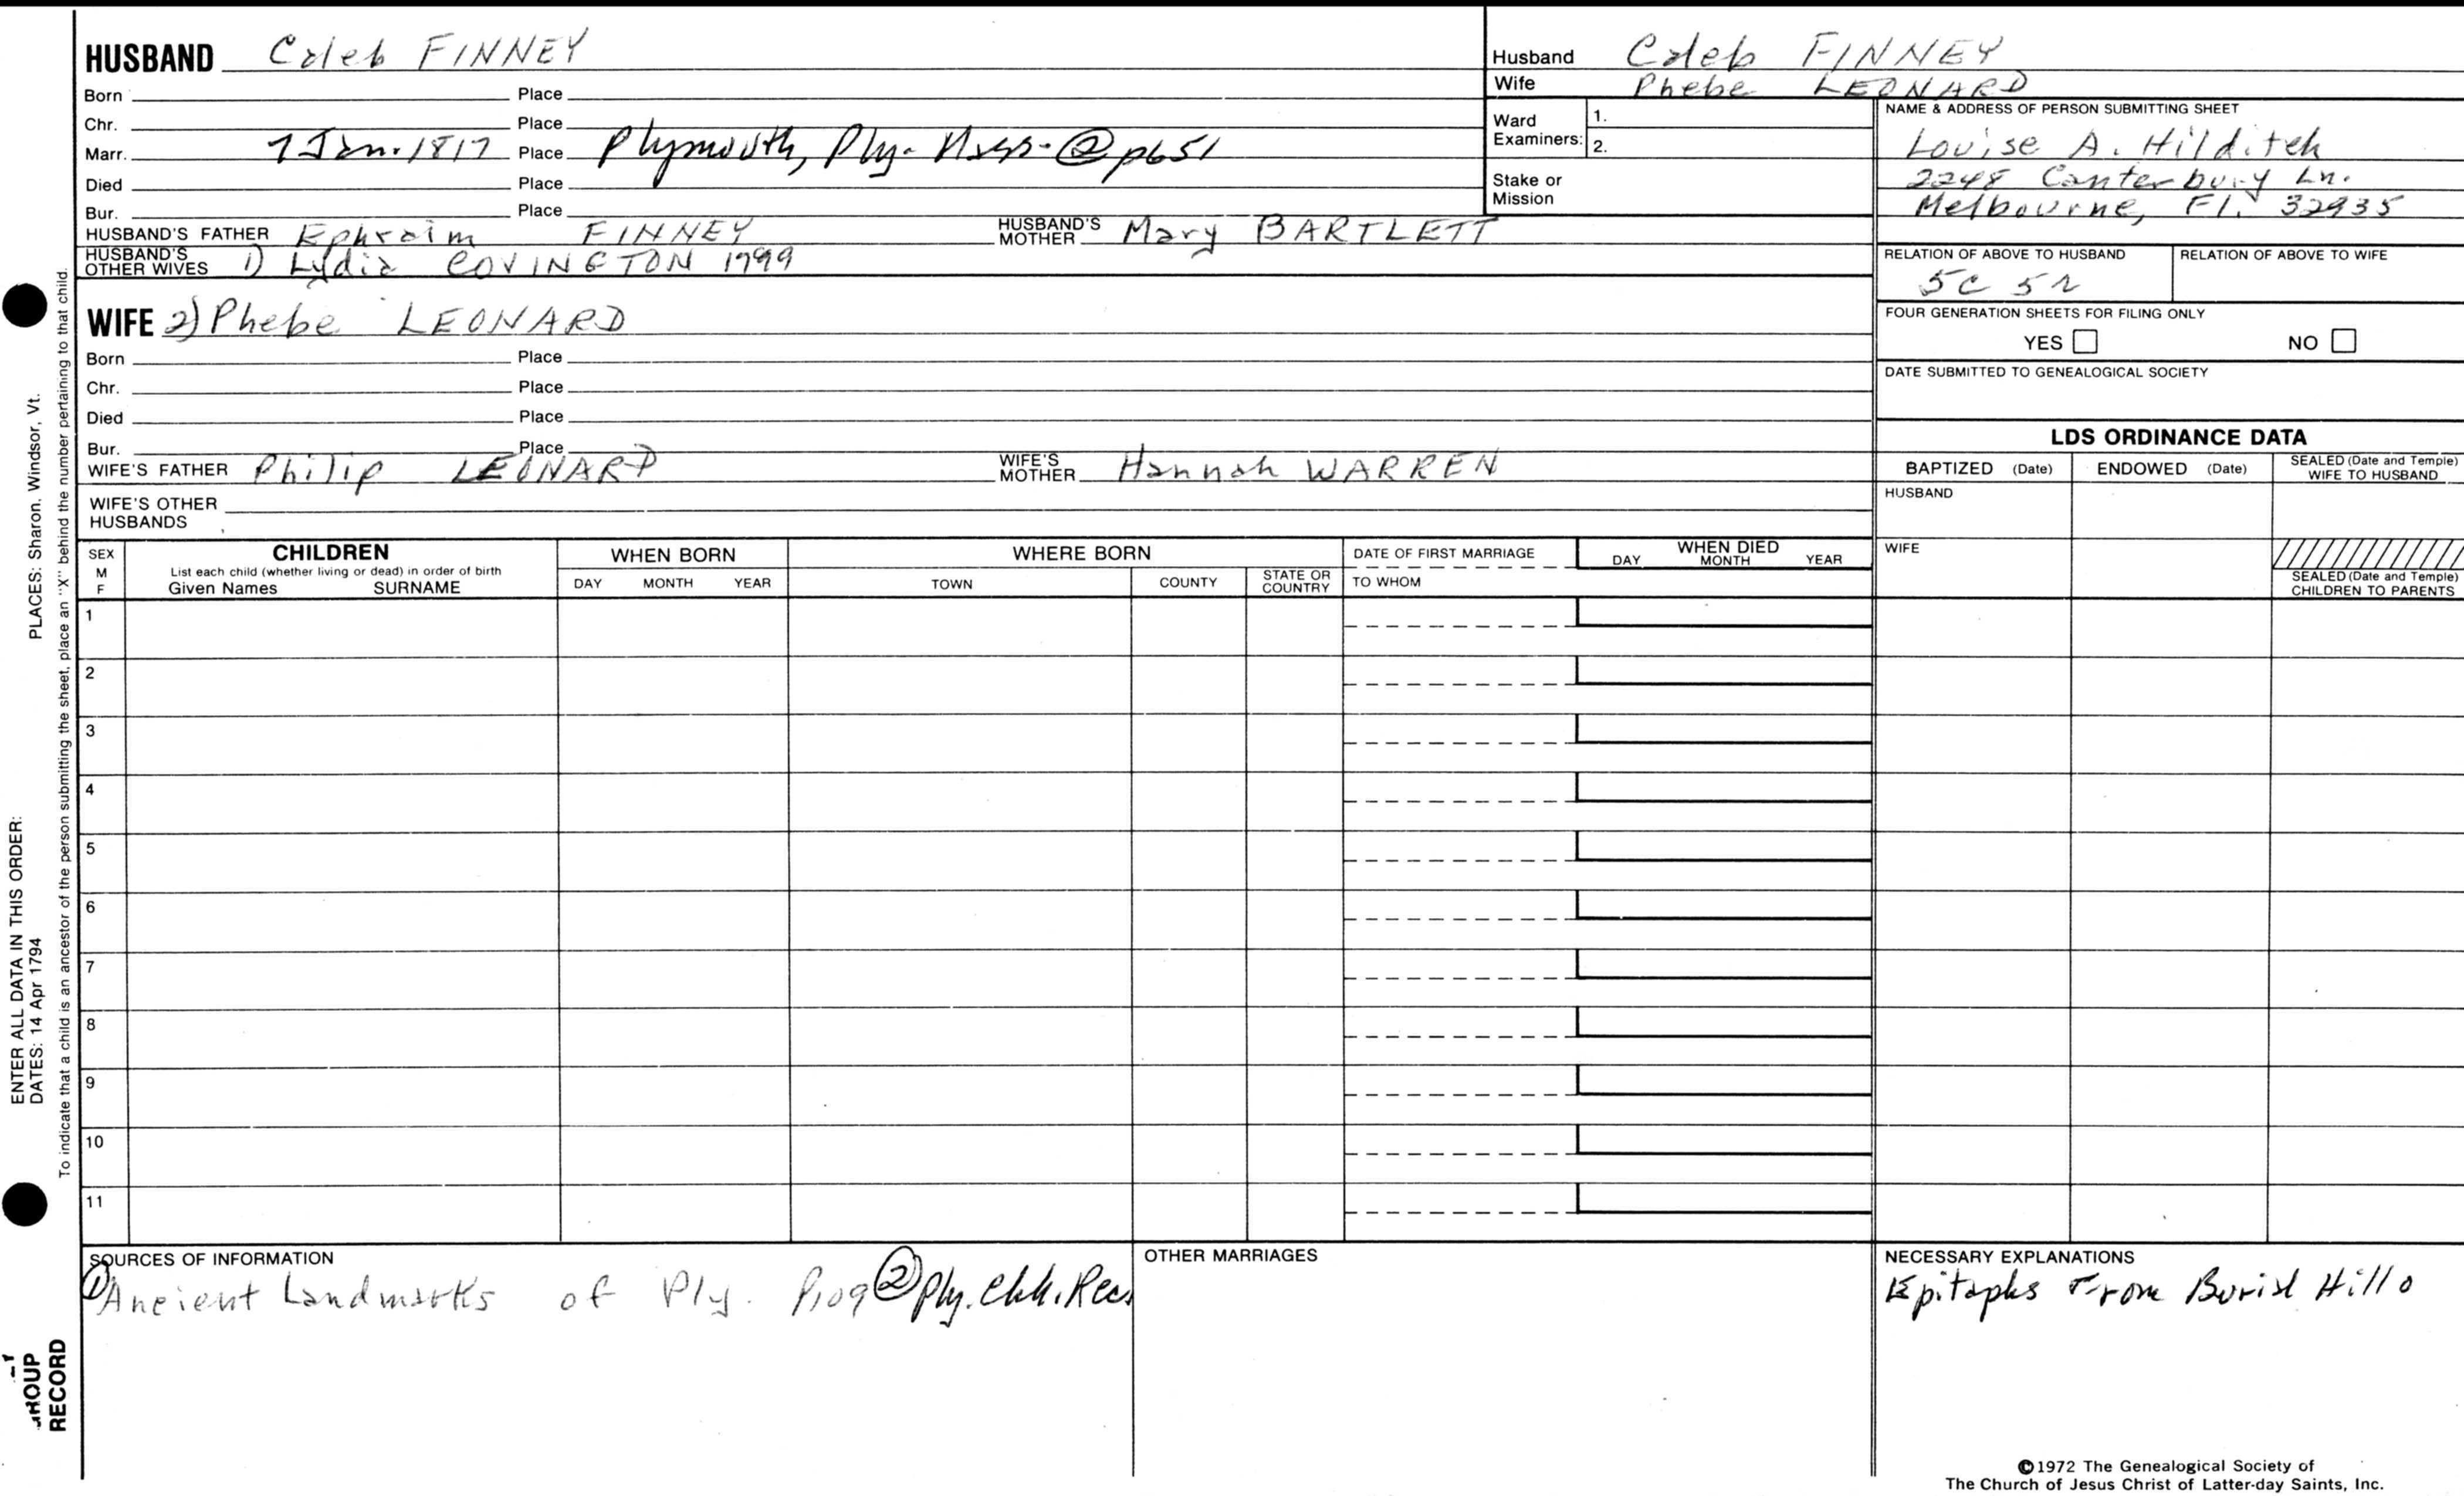 HUSBAND Caleb FINNEY
Born Place
Chr. Place
Marr. 7 Jan. 1817 Place Plymouth, Ply. Mass. ② p651
Died Place
Bur. Place
HUSBAND'S FATHER Ephraim FINNEY HUSBAND'S MOTHER Mary BARTLETT
HUSBAND'S OTHER WIVES 1) Lydia COVINGTON 1799
Husband Caleb FINNEY
Wife Phebe LEONARD
Ward Examiners: 1.
2.
Stake or Mission
NAME & ADDRESS OF PERSON SUBMITTING SHEET
Louise A. Hilditch
2248 Canterbury Ln.
Melbourne, Fl. 32935
RELATION OF ABOVE TO HUSBAND RELATION OF ABOVE TO WIFE
5C 5R
FOUR GENERATION SHEETS FOR FILING ONLY
YES NO
DATE SUBMITTED TO GENEALOGICAL SOCIETY
WIFE 2) Phebe LEONARD
Born Place
Chr. Place
Died Place
Bur. Place
WIFE'S FATHER Philip LEONARD WIFE'S MOTHER Hannah WARREN
WIFE'S OTHER HUSBANDS
LDS ORDINANCE DATA
BAPTIZED (Date) ENDOWED (Date) SEALED (Date and Temple) WIFE TO HUSBAND
HUSBAND
WIFE
SEALED (Date and Temple) CHILDREN TO PARENTS
SEX M F
CHILDREN
List each child (whether living or dead) in order of birth
Given Names SURNAME
WHEN BORN
DAY MONTH YEAR
WHERE BORN
TOWN COUNTY STATE OR COUNTRY
DATE OF FIRST MARRIAGE
TO WHOM
WHEN DIED
DAY MONTH YEAR
1
2
3
4
5
6
7
8
9
10
11
SOURCES OF INFORMATION
① Ancient Landmarks of Ply. P109 ② Ply. Chh. Rec.
OTHER MARRIAGES
NECESSARY EXPLANATIONS
Epitaphs From Burial Hill
©1972 The Genealogical Society of
The Church of Jesus Christ of Latter-day Saints, Inc.
PLACES: Sharon, Windsor, Vt.
ENTER ALL DATA IN THIS ORDER:
DATES: 14 Apr 1794
To indicate that a child is an ancestor of the person submitting the sheet, place an "X" behind the number pertaining to that child.
GROUP
RECORD